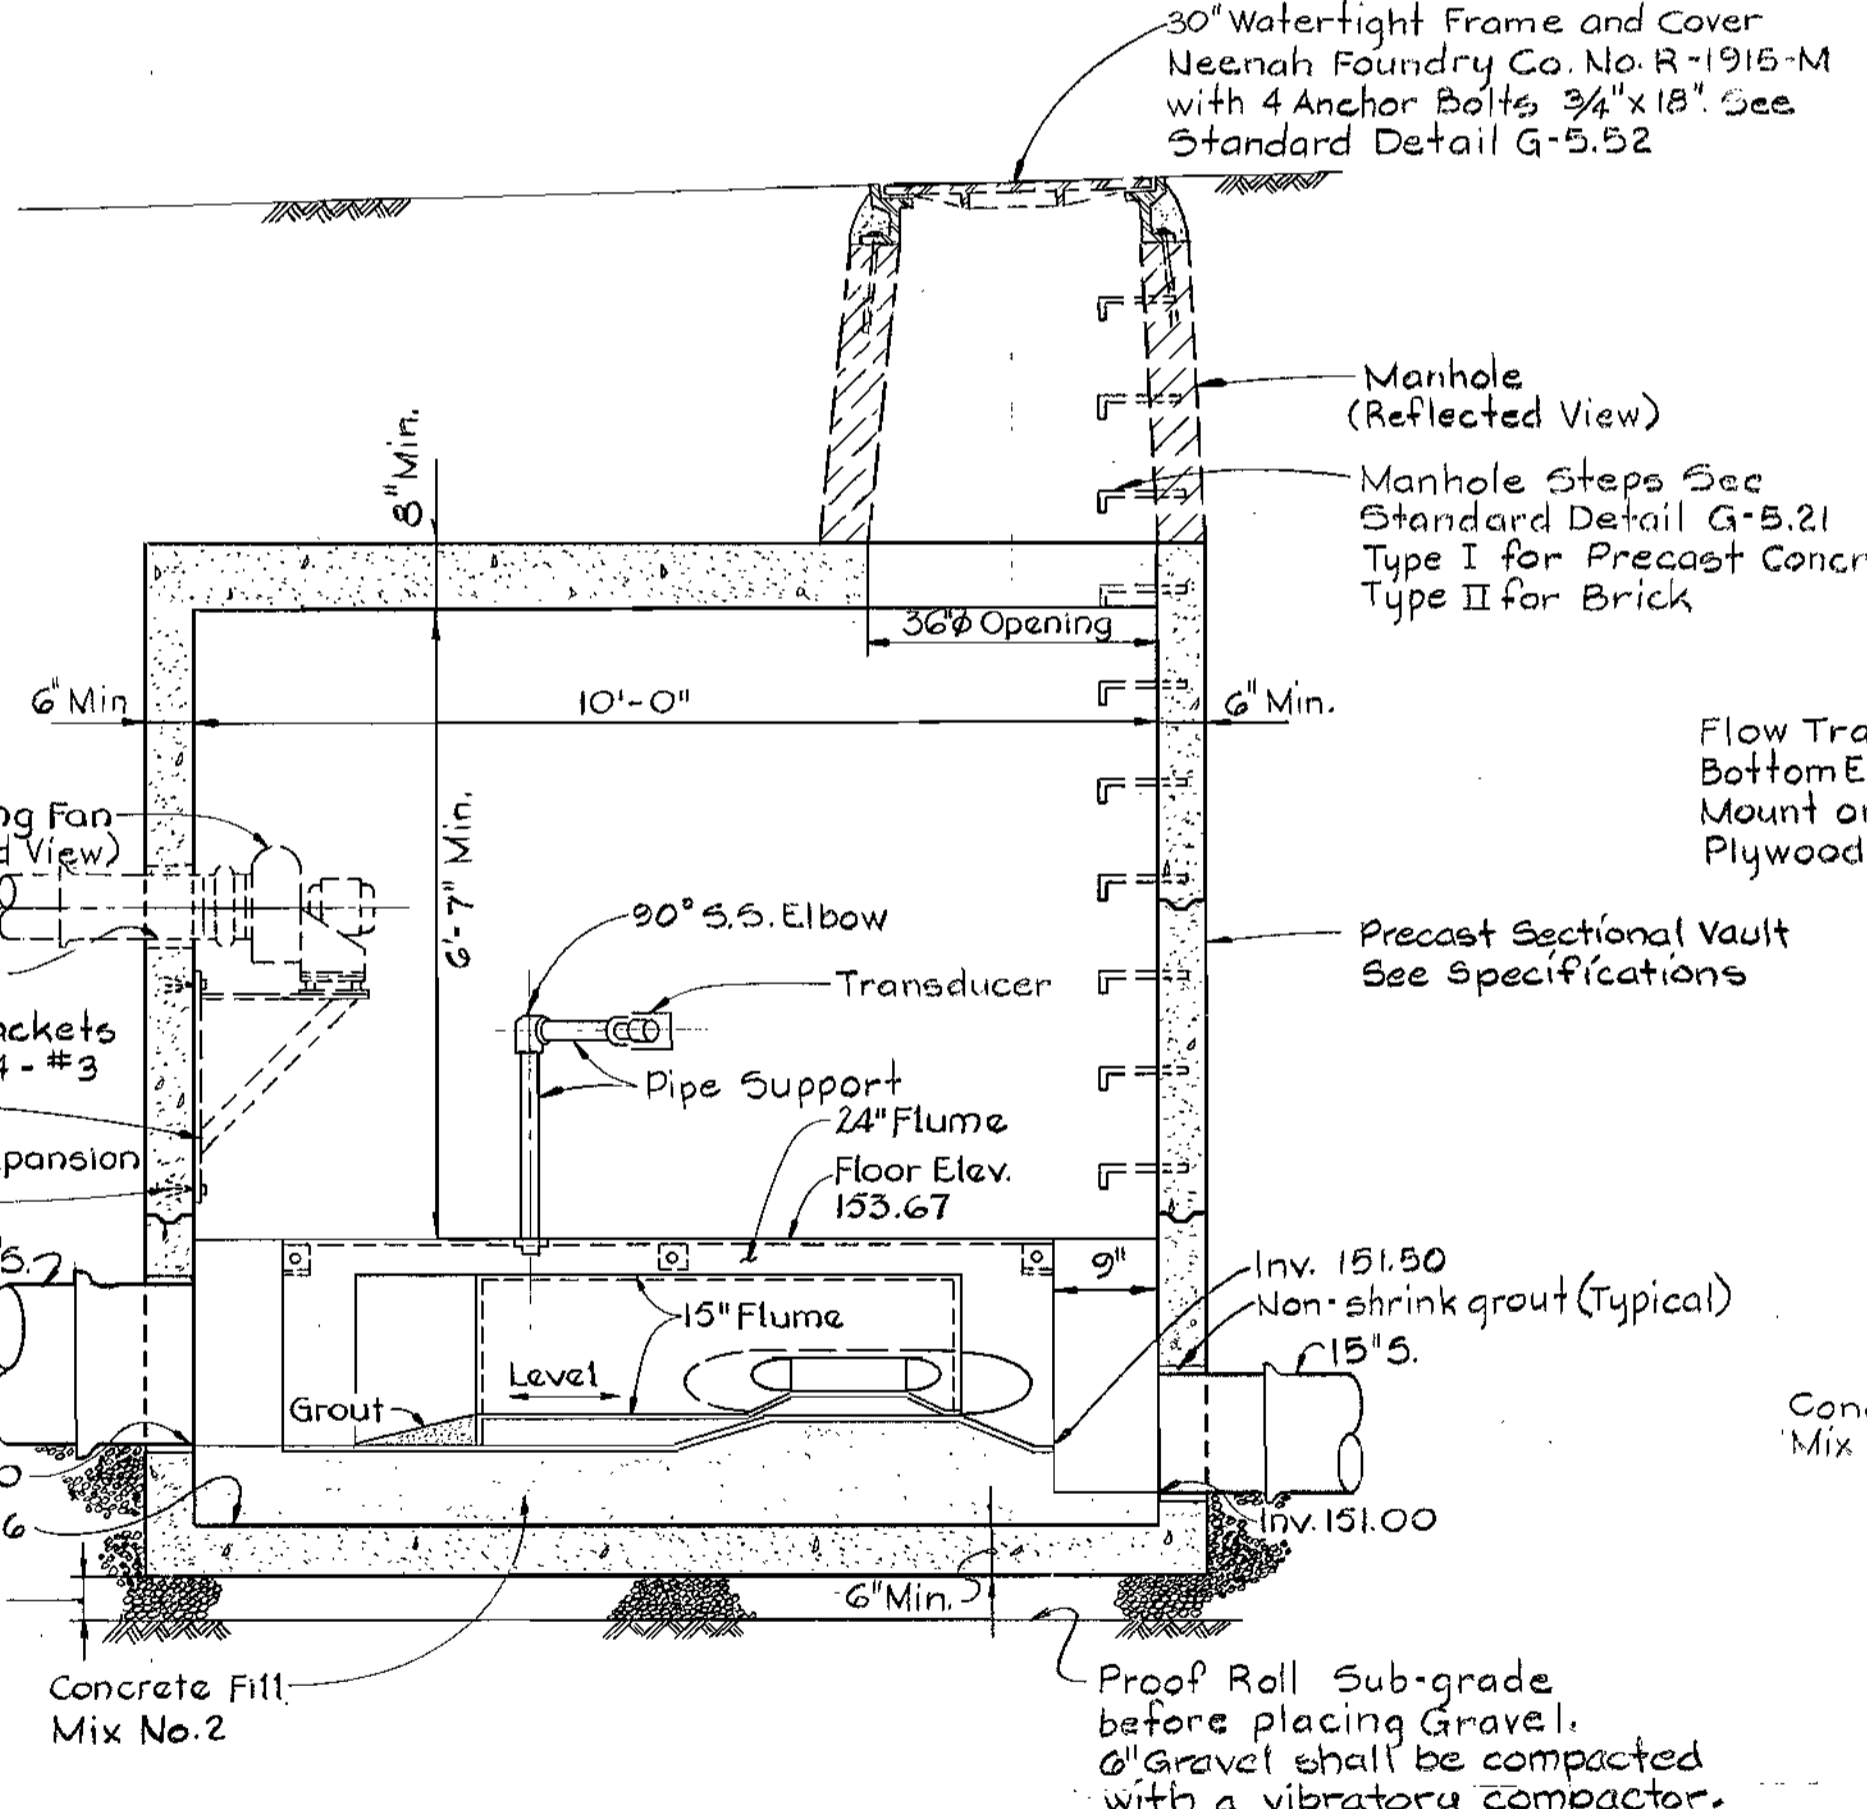 30" Watertight Frame and Cover
Neenah Foundry Co. No. R-1915-M
with 4 Anchor Bolts 3/4" x 18". See
Standard Detail G-5.52
Manhole
(Reflected View)
8" Min.
Manhole Steps See
Standard Detail G-5.21
Type I for Precast Concr
Type II for Brick
36"φ Opening
6" Min
10'-0"
6" Min.
Flow Tra
Bottom E
Mount or
Plywood
ng Fan
d View)
6'-7" Min.
90° S.S. Elbow
Precast Sectional Vault
See Specifications
Transducer
ackets
4 - #3
Pipe Support
24" Flume
pansion
Floor Elev.
153.67
"S.
9"
Inv. 151.50
Non-shrink grout (Typical)
15" Flume
15" S.
Level
Grout
Conc
Mix
0
6
Inv. 151.00
6" Min.
Concrete Fill
Mix No. 2
Proof Roll Sub-grade
before placing Gravel.
6" Gravel shall be compacted
with a vibratory compactor.